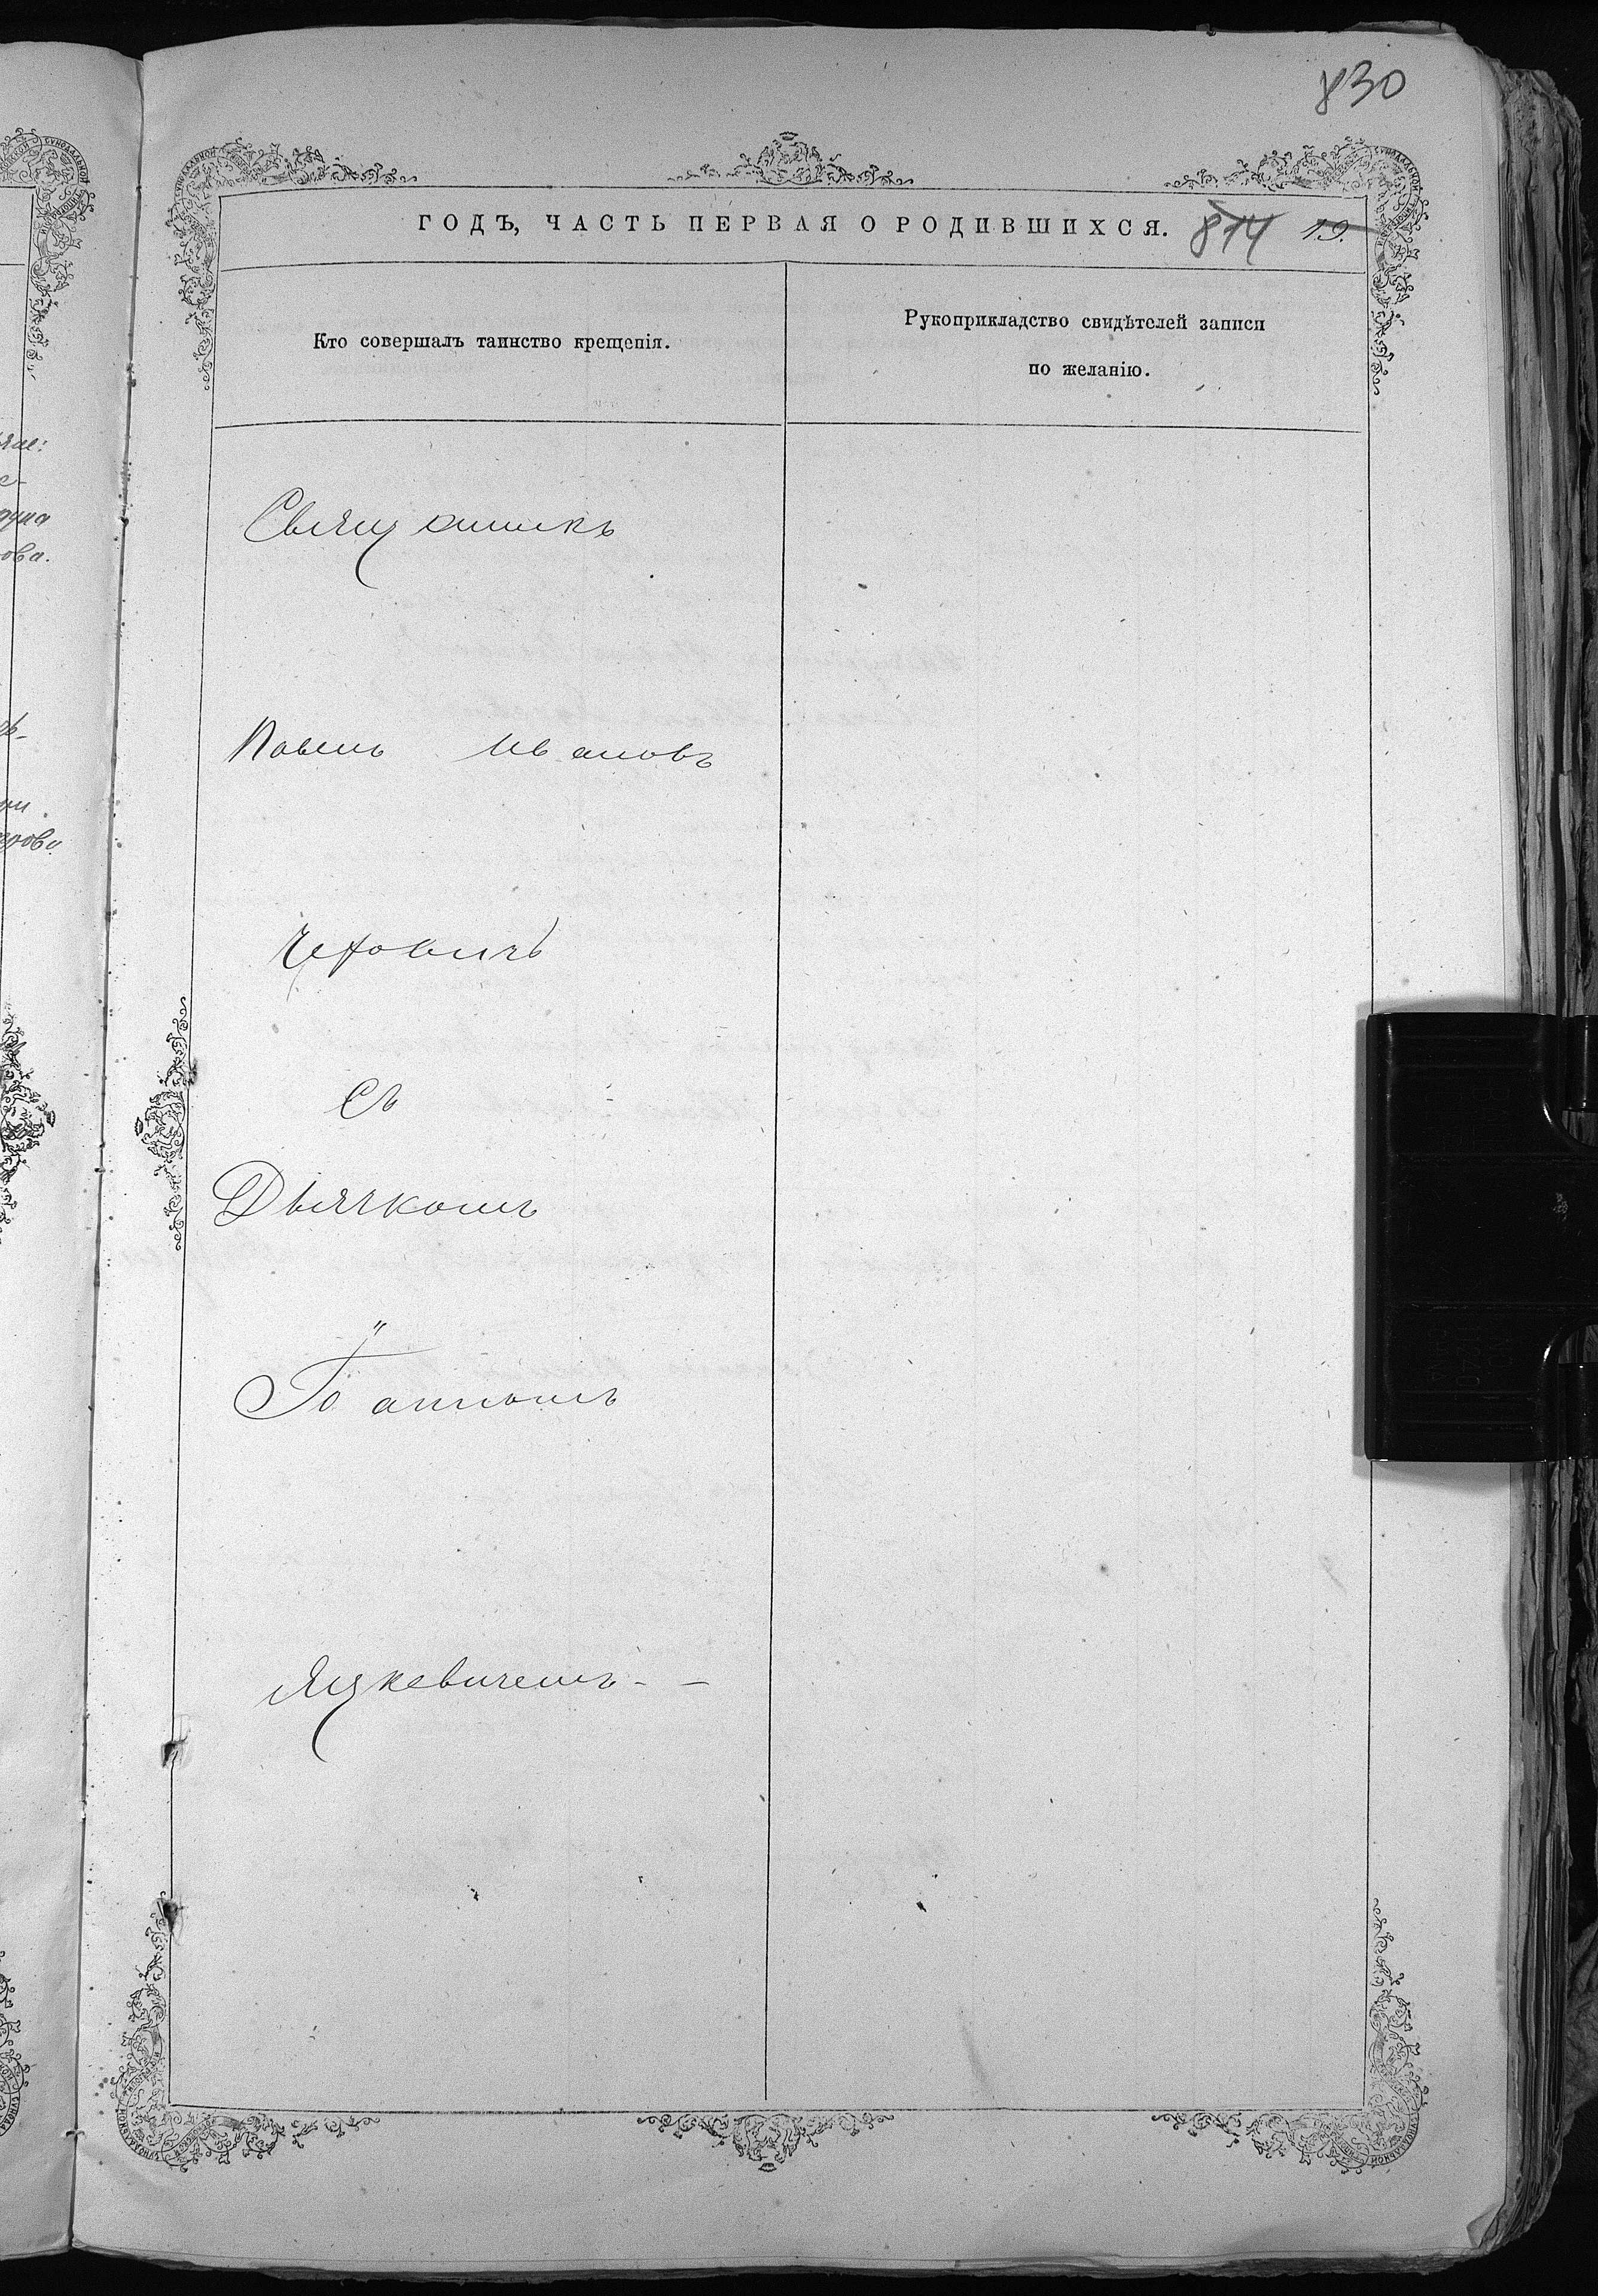 830
ГОДЪ, ЧАСТЬ ПЕРВАЯ О РОДИВШИХСЯ. 814 19.
Кто совершалъ таинство крещенія.
Рукоприкладство свидѣтелей записи
по желанію.
Священникъ
Павелъ Ивановъ
Чеховичъ
Съ
Дьячкомъ
Іоанномъ
Яцкевичемъ - -
ова.